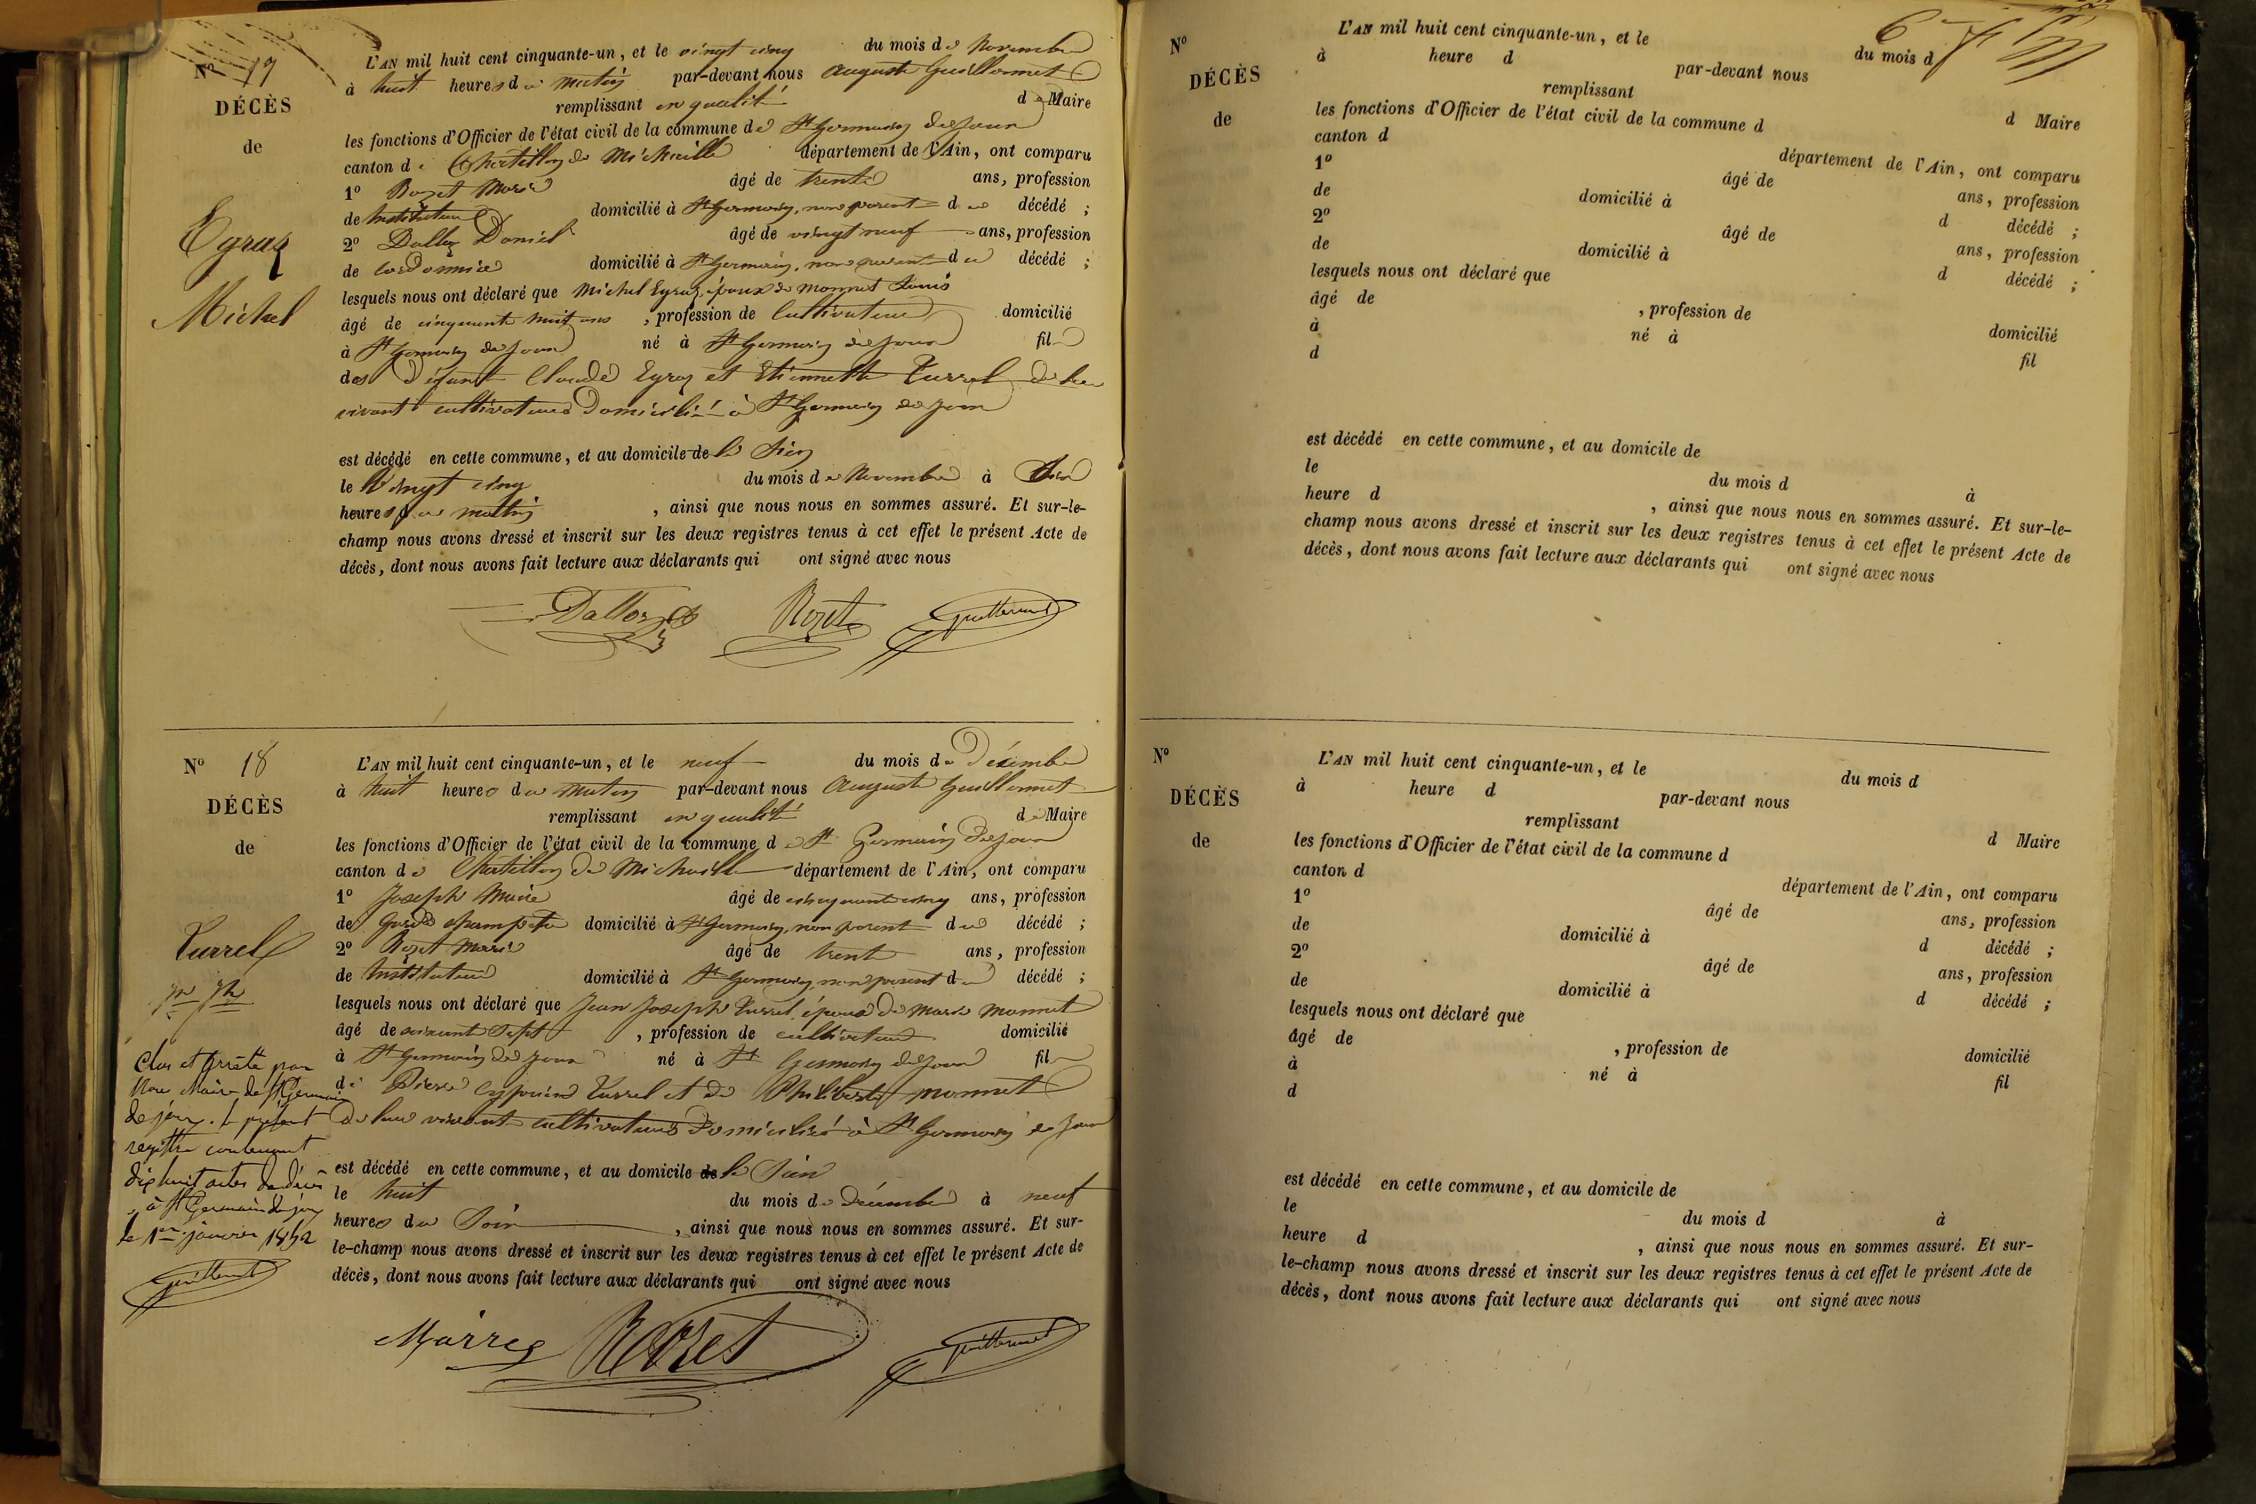 N° 17
DÉCÈS
de
Egraz
Michel
L'AN mil huit cent cinquante-un, et le vingt cinq du mois de Novembre
à huit heures du matin par-devant nous Auguste Guillermet
remplissant en qualité de Maire
les fonctions d'Officier de l'état civil de la commune de St Germain de Joux
canton de Chatillon de Michaille département de l'Ain, ont comparu
1° Rozet Marie âgé de trente ans, profession
de Instituteur domicilié à St Germain, non parent du décédé ;
2° Dalloz Daniel âgé de vingt neuf ans, profession
de cordonnier domicilié à St Germain, non parent du décédé ;
lesquels nous ont déclaré que Michel Egraz, époux de Monnet Louise
âgé de cinquante huit ans , profession de Cultivateur domicilié
à St Germain de Joux né à St Germain de Joux fils
des défunt Claude Egraz et Etiennette Turrel de leur
vivant cultivateurs Domiciliés à St Germain de Joux
est décédé en cette commune, et au domicile de le Sien
le Vingt cinq du mois de Novembre à
heures du matin , ainsi que nous nous en sommes assuré. Et sur-le-
champ nous avons dressé et inscrit sur les deux registres tenus à cet effet le présent Acte de
décès, dont nous avons fait lecture aux déclarants qui ont signé avec nous
Dalloz Rozet Guillermet
N° 18
DÉCÈS
de
Turrel
Jn Jh
L'AN mil huit cent cinquante-un, et le neuf du mois de Décembre
à huit heures du matin par-devant nous Auguste Guillermet
remplissant en qualité de Maire
les fonctions d'Officier de l'état civil de la commune de St Germain de Joux
canton de Chatillon de Michaille département de l'Ain, ont comparu
1° Joseph Marie âgé de cinquante cinq ans, profession
de garde champêtre domicilié à St Germain, non parent du décédé ;
2° Rozet Marie âgé de trente ans, profession
de Instituteur domicilié à St Germain, non parent du décédé ;
lesquels nous ont déclaré que Jean Joseph Turrel, époux de Marie Monnet
âgé de soixante Sept , profession de cultivateur domicilié
à St Germain de Joux né à St Germain de Joux fils
de Pierre Cyprien Turrel et de Philiberte Monnet
de leur vivant cultivateurs Domiciliés à St Germain de Joux
est décédé en cette commune, et au domicile de le Sien
le huit du mois de Décembre à neuf
heures du Soir , ainsi que nous nous en sommes assuré. Et sur-
le-champ nous avons dressé et inscrit sur les deux registres tenus à cet effet le présent Acte de
décès, dont nous avons fait lecture aux déclarants qui ont signé avec nous
Rozet Guillermet
Clos et Arrêté par
Nous Maire de St Germain
de joux. le présent
registre contenant
dix huit actes de décès
à St Germain de joux
le 1er janvier 1852
Guillermet
N°
DÉCÈS
de
L'AN mil huit cent cinquante-un, et le du mois d
à heure d par-devant nous
remplissant d Maire
les fonctions d'Officier de l'état civil de la commune d
canton d département de l'Ain, ont comparu
1° âgé de ans, profession
de domicilié à d décédé ;
2° âgé de ans, profession
de domicilié à d décédé ;
lesquels nous ont déclaré que
âgé de , profession de domicilié
à né à fil
d
est décédé en cette commune, et au domicile de
le du mois d à
heure d , ainsi que nous nous en sommes assuré. Et sur-le-
champ nous avons dressé et inscrit sur les deux registres tenus à cet effet le présent Acte de
décès, dont nous avons fait lecture aux déclarants qui ont signé avec nous
N°
DÉCÈS
de
L'AN mil huit cent cinquante-un, et le du mois d
à heure d par-devant nous
remplissant d Maire
les fonctions d'Officier de l'état civil de la commune d
canton d département de l'Ain, ont comparu
1° âgé de ans, profession
de domicilié à d décédé ;
2° âgé de ans, profession
de domicilié à d décédé ;
lesquels nous ont déclaré que
âgé de , profession de domicilié
à né à fil
d
est décédé en cette commune, et au domicile de
le du mois d à
heure d , ainsi que nous nous en sommes assuré. Et sur-
le-champ nous avons dressé et inscrit sur les deux registres tenus à cet effet le présent Acte de
décès, dont nous avons fait lecture aux déclarants qui ont signé avec nous